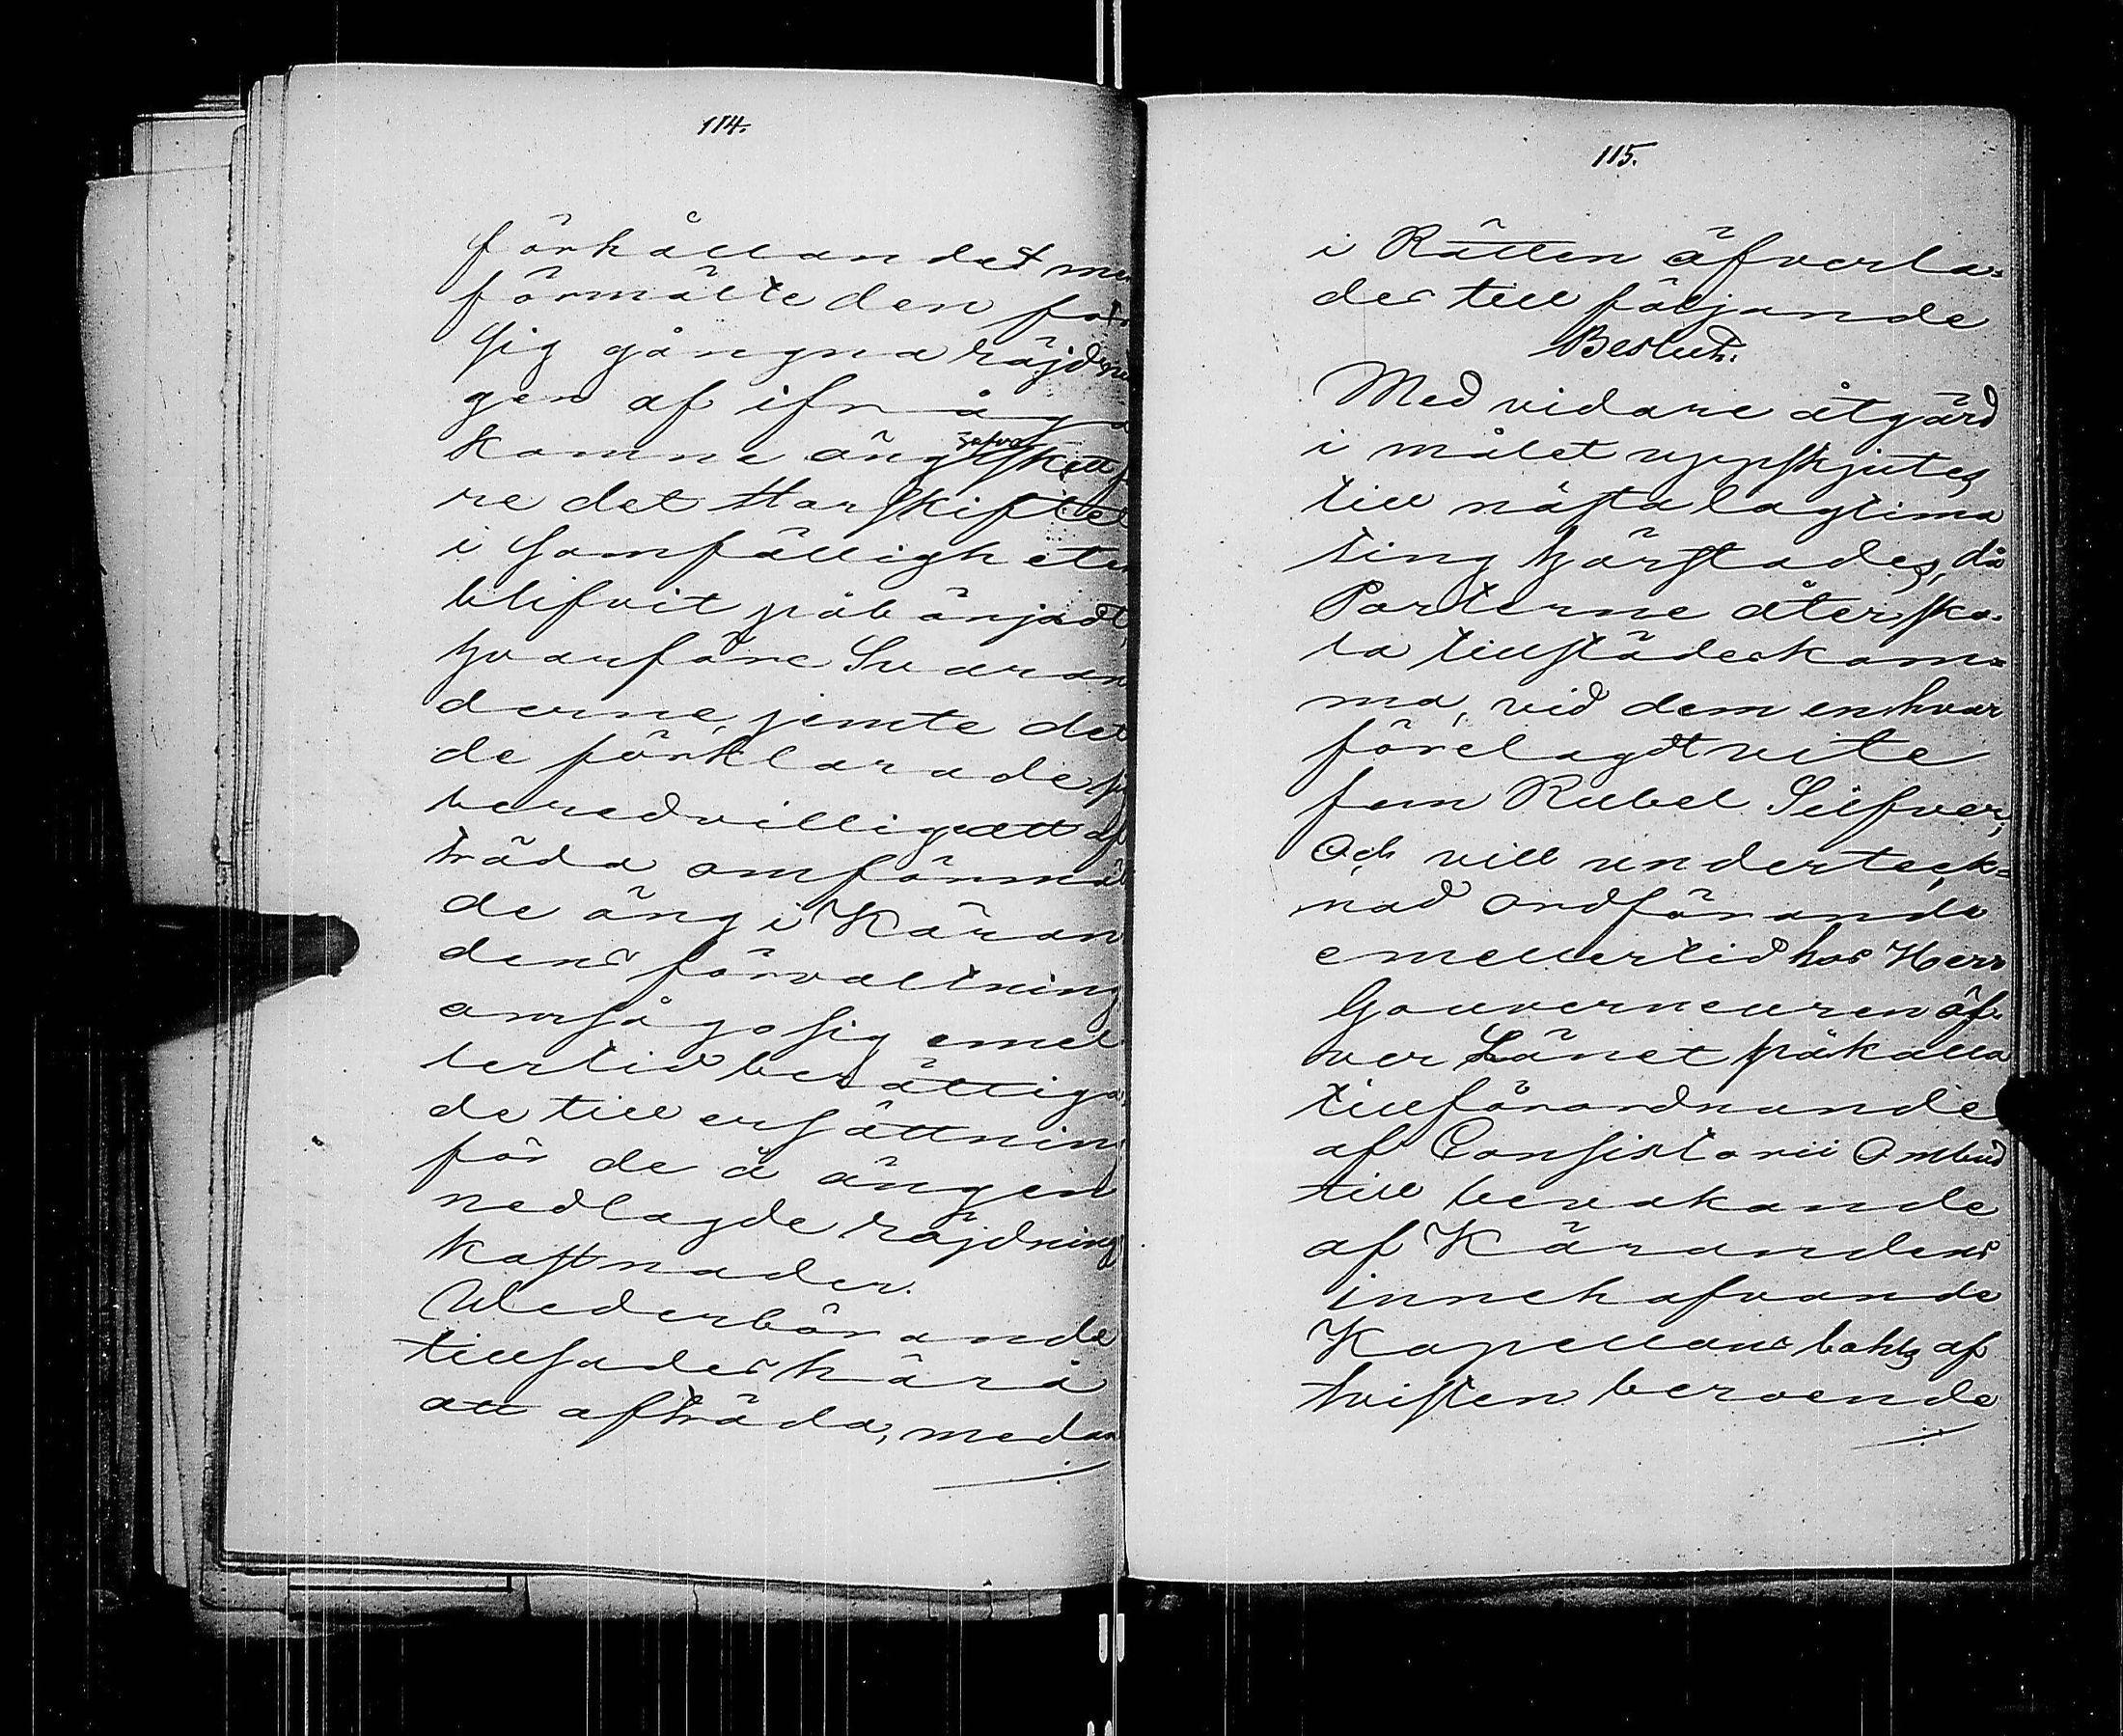 114.
förhållandet men
förmälte den för
sig gångna röjdnin
gen af ifråga
komne äng skett
re det Storskiftet
i samfälligheten
blifvit påbörjadt,
hvarföre Svaran
derne, jemte det
de förklarade sig
beredvillige att af
träda omförmäl
de äng i Käran
dens förvaltning
ansågo sig emel
lertid berättiga
de till ersättning
för de å ängen
nedlagde röjdning
kostnader.
Wederbörande
tillsades härå
att afträda, medan
115.
i Rätten öfverla-
des till följande
Beslut.
Med vidare åtgärd
i målet uppskjutes
till nästa lagtima
ting härstädes, då
Parterne åter ska-
la tillstädeskom-
ma, vid dem enhvar
förelagdt vite
fem Rubel Silfver;
Och vill underteck-
nad Ordförande
emellertid hos Herr
Gouverneuren öf-
ver Länet påkalla
tillförordnande
af Consistorii Ombud
till bevakande
af Kärandens
innehafvande
Kapellans bohls af
tvisten beroende